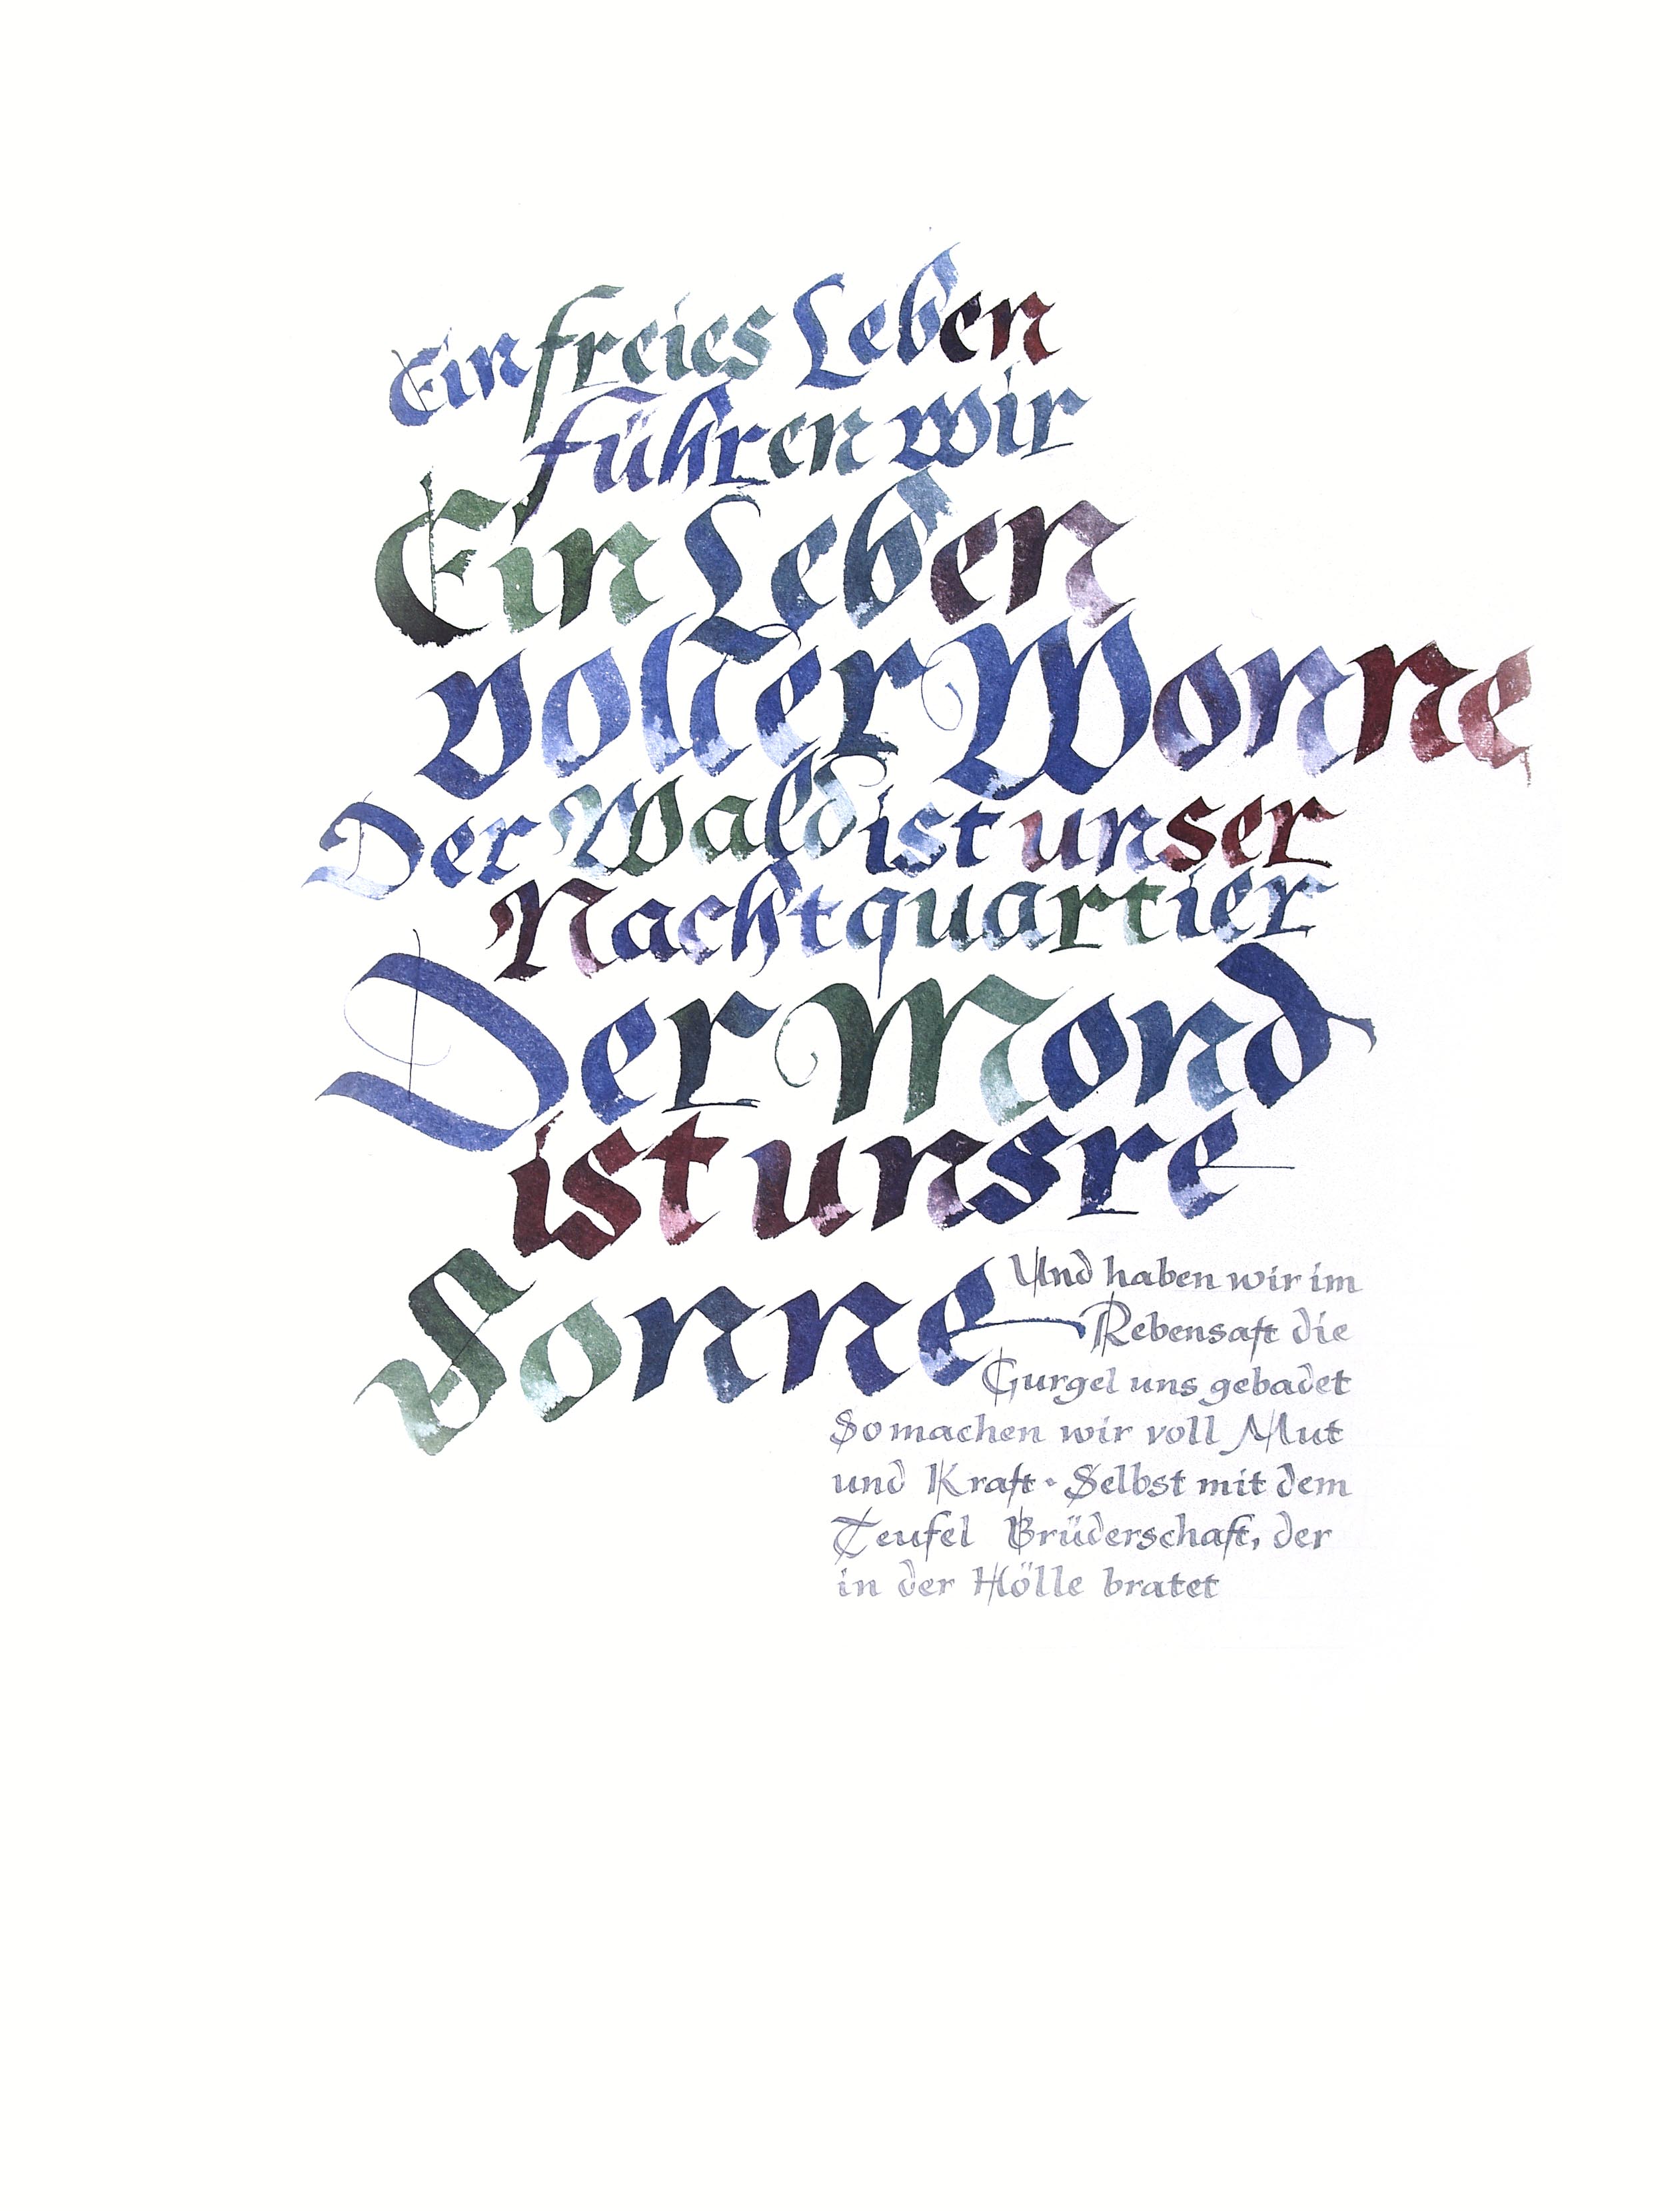 Ein freies Leben
führen wir
Ein Leben
voller Wonne
Der Wald ist unser
Nachtquartier
Der Mond
ist unsre
Sonne
Und haben wir im
Rebensaft die
Gurgel uns gebadet
So machen wir voll Mut
und Kraft · Selbst mit dem
Teufel Brüderschaft, der
in der Hölle bratet